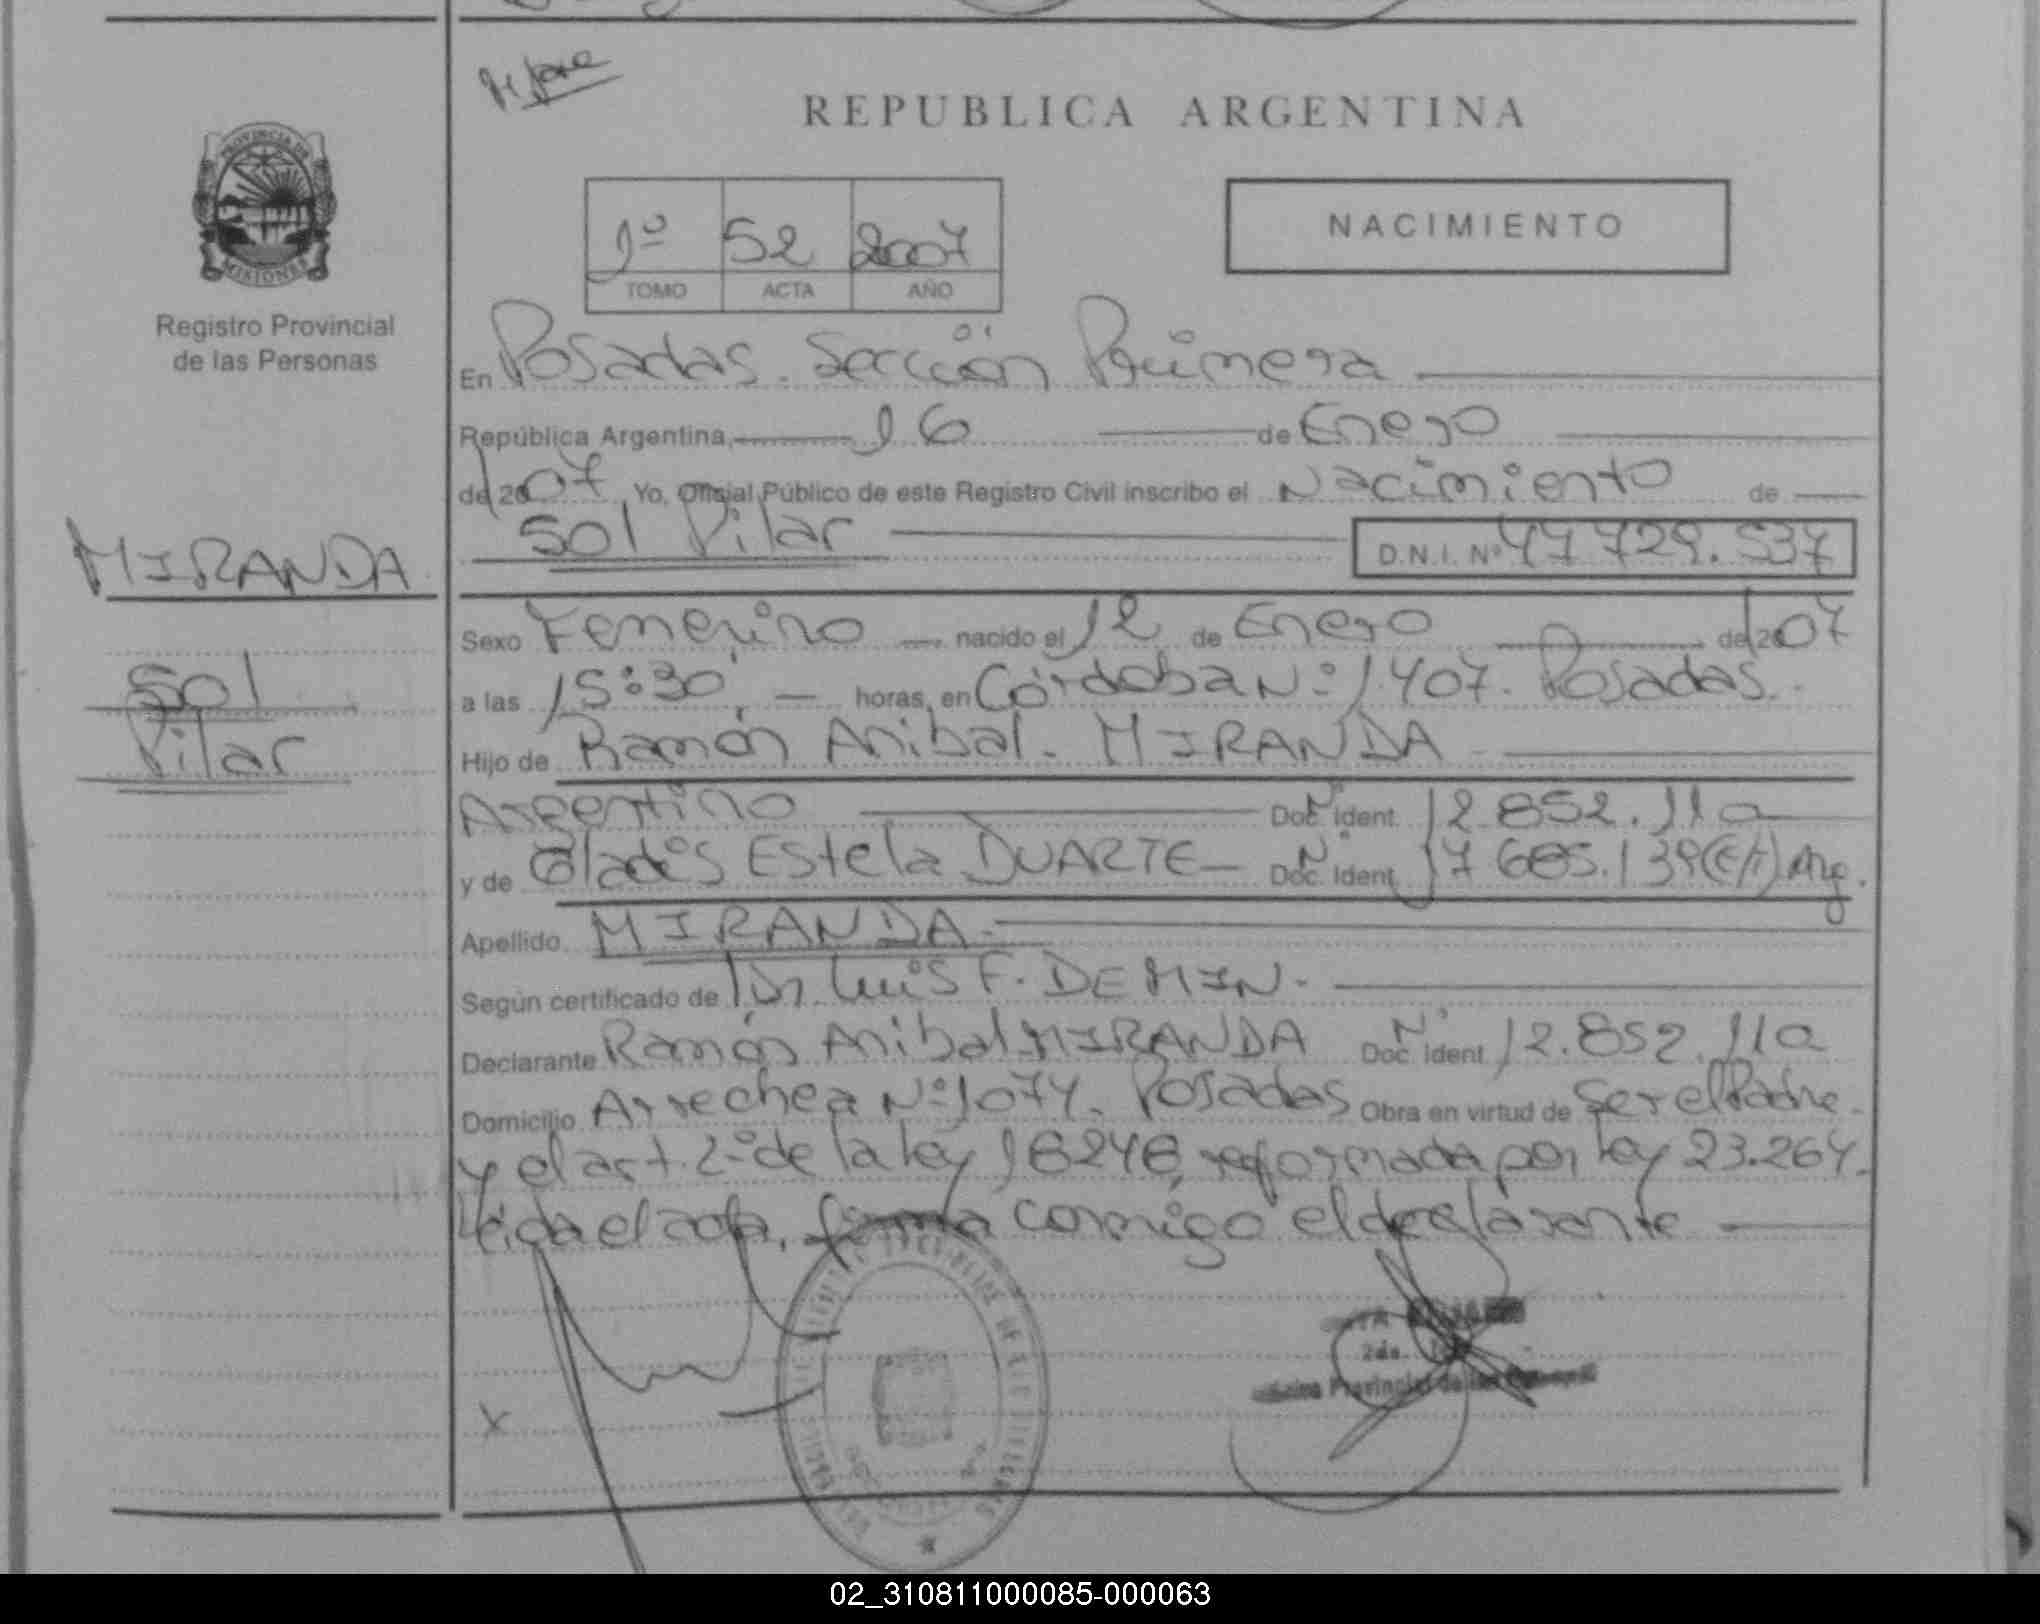 REPUBLICA ARGENTINA
PROVINCIA DE
MISIONES
Registro Provincial
de las Personas
1º 52 2007
TOMO ACTA AÑO
NACIMIENTO
En Posadas. Sección Primera
República Argentina, 16 de Enero
de 2007 Yo, Oficial Público de este Registro Civil inscribo el Nacimiento de
Sol Pilar D.N.I. Nº 47 729.537
MIRANDA
Sol
Pilar
Sexo Femenino nacido el 12 de Enero de 2007
a las 15:30, horas, en Córdoba Nº 1.407. Posadas.
Hijo de Ramón Anibal. MIRANDA
Argentino Doc. Ident. Nº 12.852.110
y de Gladis Estela DUARTE Doc. Ident. Nº 17 685.139 (E/T) Arg.
Apellido MIRANDA.
Según certificado de Dr Luis F. DEMIN.
Declarante Ramón Anibal MIRANDA Doc. Ident. Nº 12.852.110
Domicilio Arrechea Nº 1074. Posadas Obra en virtud de Ser el Padre
y el art. 2º de la Ley 18248, reformada por Ley 23.264.
Leida el acta, firma conmigo el declarante
X
2do.
Provincial de las
02_310811000085-000063